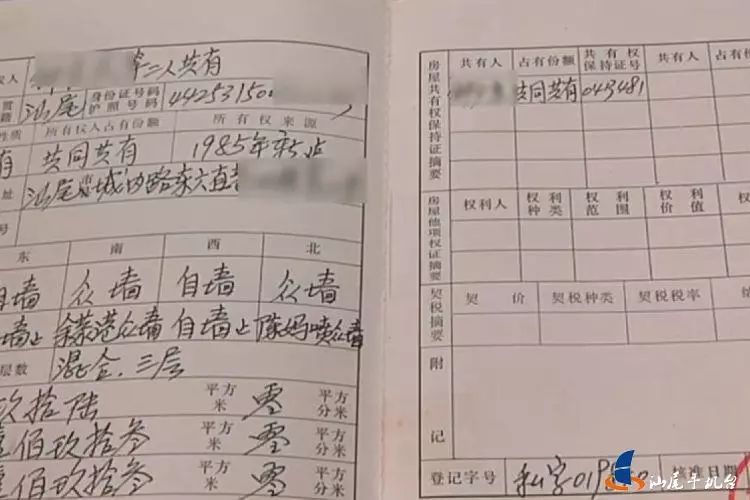 权人 等二人共有
籍 汕尾 身份证号码 护照号码 44253150
性质 所有权人占有份额 所有权来源
有 共同共有 1985年
址 汕尾 城内路东六直
号
东 南 西 北
自墙 众墙 自墙 众墙
墙止 众墙 自墙止 众墙
层数 混合.三层
玖拾陆 平方米 零 平方分米
佰玖拾叁 平方米 零 平方分米
佰玖拾叁 平方米 零 平方分米
房屋共有权保持证摘要
共有人 占有份额 共有权保持证号 共有人 占有份
共同共有 043481
房屋他项权证摘要
权利人 权利种类 权利范围 权利价值 权
契税摘要
契价 契税种类 契税税率 纳
附记
登记字号 私字 核准日期
汕尾手机台